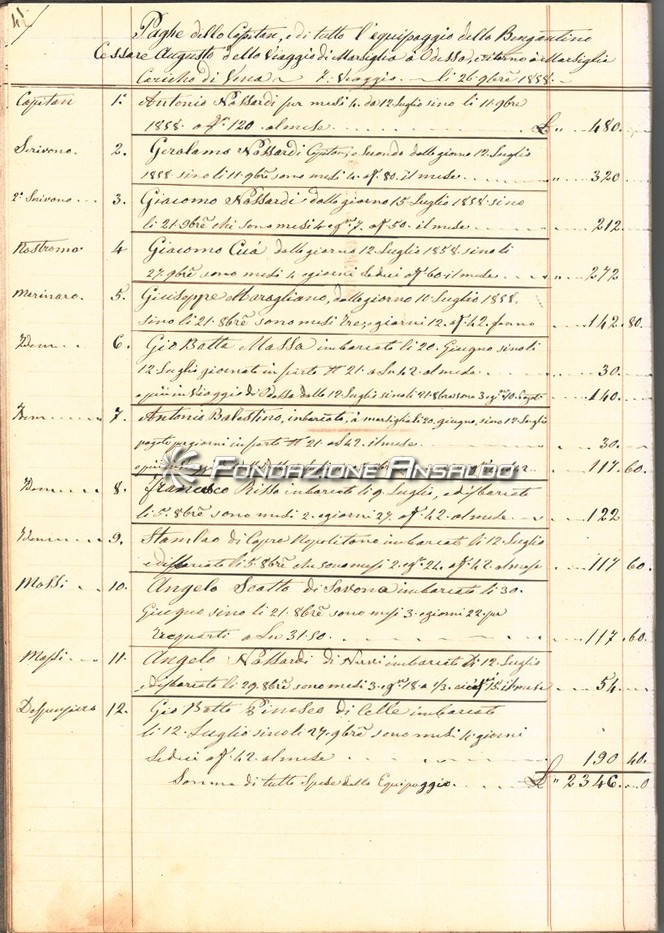 41
Paghe dello Capitan, e di tutto l'equipaggio dello Bregantino
Cessare Augusto dello Viaggio di Marsiglia à Odessa, e ritorno à Marsiglia
Caricho di 7. Viaggio li 26 9bre 1858
Capitan 1. Antonio Nassardi per mesi 4. da 12 Luglio sino li 11 9bre
1858 a 120 al mese £ " 480.
Scrivano. 2. Gerolamo Nassardi secondo dallo giorno 12 Luglio
1858 sino li 11 9bre sono mesi 4. a 80. il mese " 320
2° Scrivano. 3. Giacomo Nassardi dallo giorno 15 Luglio 1858 sino
li 21 9bre che sono mesi 4 e 7. a 50. il mese 212.
Nostromo 4 Giacomo Cuá dallo giorno 12 Luglio 1858 sino li
27 9bre sono mesi 4 e giorni sedeci a 60 il mese 272
Marinaro. 5. Giuseppe Maragliano, dallo giorno 10 Luglio 1858.
sino li 21. 8bre sono mesi tre, giorni 12. a 42. fanno 142. 80.
Idem 6. Gio Batta Massa imbarcato li 20. Giugno sino li
12 Luglio giornate in porto N 21. a Ln 42. al mese 30.
e più in Viaggio di Odessa dallo 12 Luglio sino li 21 8bre sono 3 140.
Idem 7. Antonio Balestino, imbarcato, à Marsiglia li 20. giugno, sino 12 Luglio
pagato per giorni in porto N 21. a 42. il mese. 30.
117. 60.
Fondazione Ansaldo
Idem 8. Francesco Risso imbarcato li 9. Luglio, e disbarcato
li 5. 8bre sono mesi 2. e giorni 27. a 42. al mese 122
Idem 9. di Capre Napolitano imbarcato li 12 Luglio
e disbarcato li 5. 8bre che sono mesi 2. e 24. a 42. al mese 117 60
Mossi 10. Angelo Scotto di Savona imbarcato li 30.
Giugno sino li 21. 8bre sono mesi 3. e giorni 22. per
tre quarti a Ln 31.50. 117. 60.
Mossi 11. Angelo Nassardi di Nervi imbarcato li 12 Luglio
e disbarcato li 29. 8bre sono mesi 3. e 18 a 1/3. 15. il mese 54
Despensiero 12. Gio Batta di Celle imbarcato
li 12. Luglio sino li 27. 9bre sono mesi 4. giorni
sedeci a 42. al mese 190 40.
Somma di tutto Spese dello Equipaggio. £ " 2346. 0